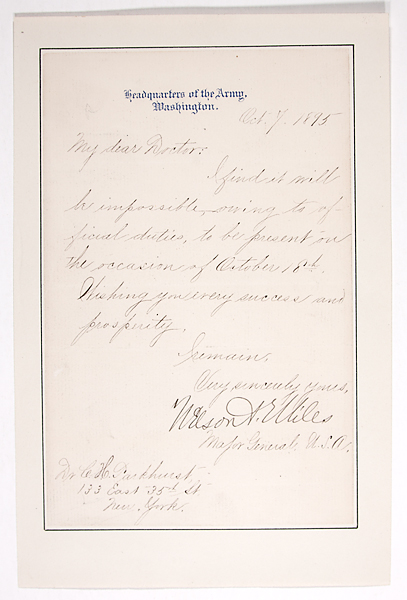 Headquarters of the Army,
Washington.
Oct. 7. 1895
My dear Doctor:
I find it will
be impossible, owing to of-
ficial duties, to be present on
the occasion of October 18th.
Wishing you every success and
prosperity,
I remain,
Very sincerely yours,
Nelson A. Miles
Major General, U.S.A.
Dr. C. H. Parkhurst,
133 East 35th St
New York.